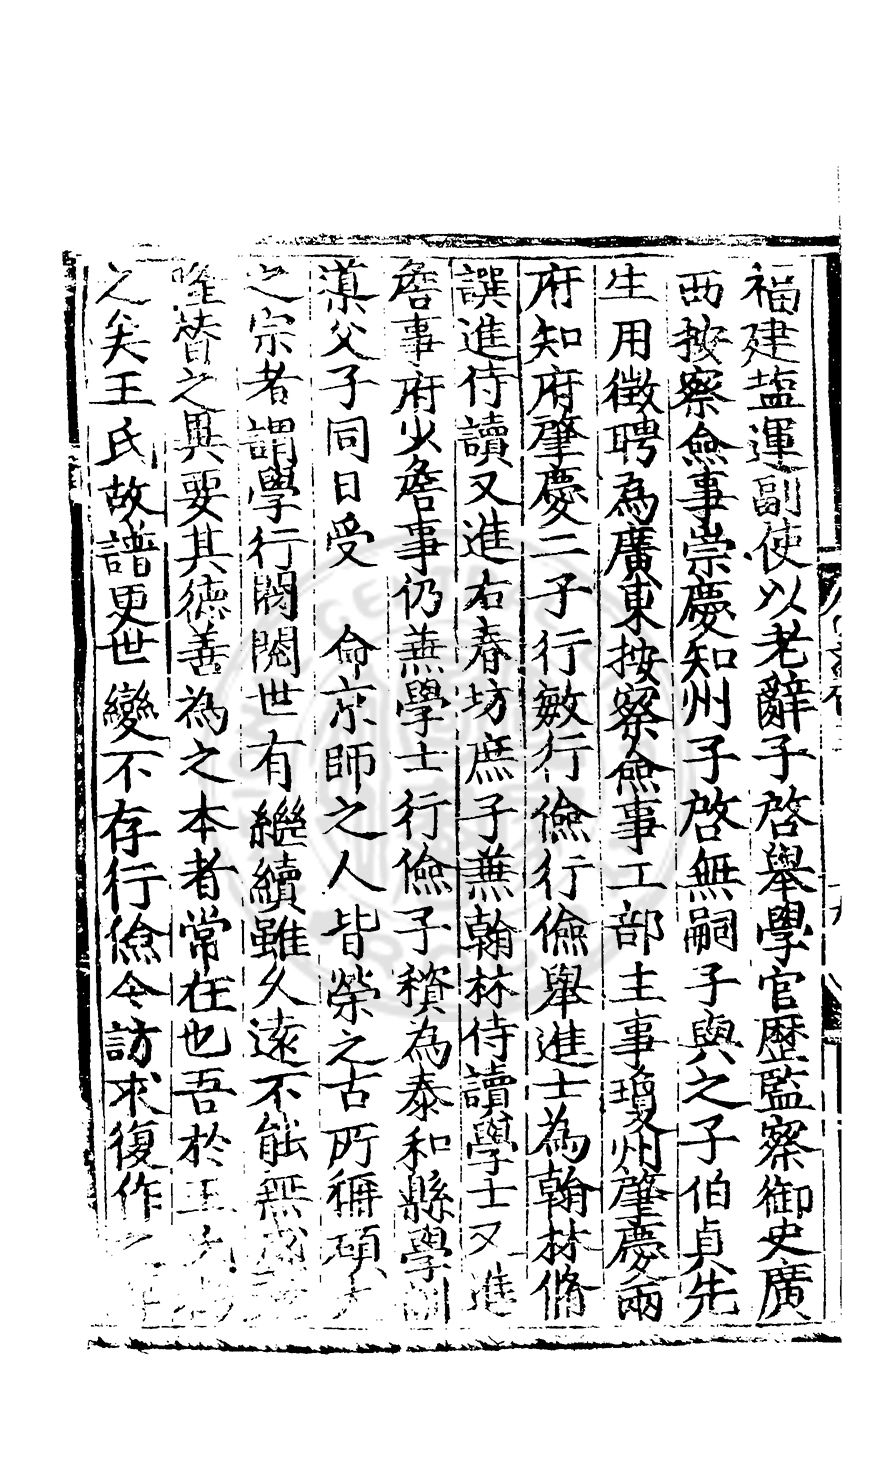 福建塩運副使以老辭子啓舉學官歷監察御史廣
西按察僉事崇慶知州子啓無嗣子與之子伯貞先
生用徵聘為廣東按察僉事工部主事瓊州肇慶兩
府知府肇慶二子行敏行儉行儉舉進士為翰林脩
譔進侍讀又進右春坊庶子兼翰林侍讀學士又進
詹事府少詹事仍兼學士行儉子穦為泰和縣學訓
導父子同日受 命京師之人皆榮之古所稱碩大
之宗者謂學行閥閱世有繼續雖久遠不能無盛衰
隆替之異要其德善為之本者常在也吾於王氏
之矣王氏故譜更世變不存行儉今訪求復作